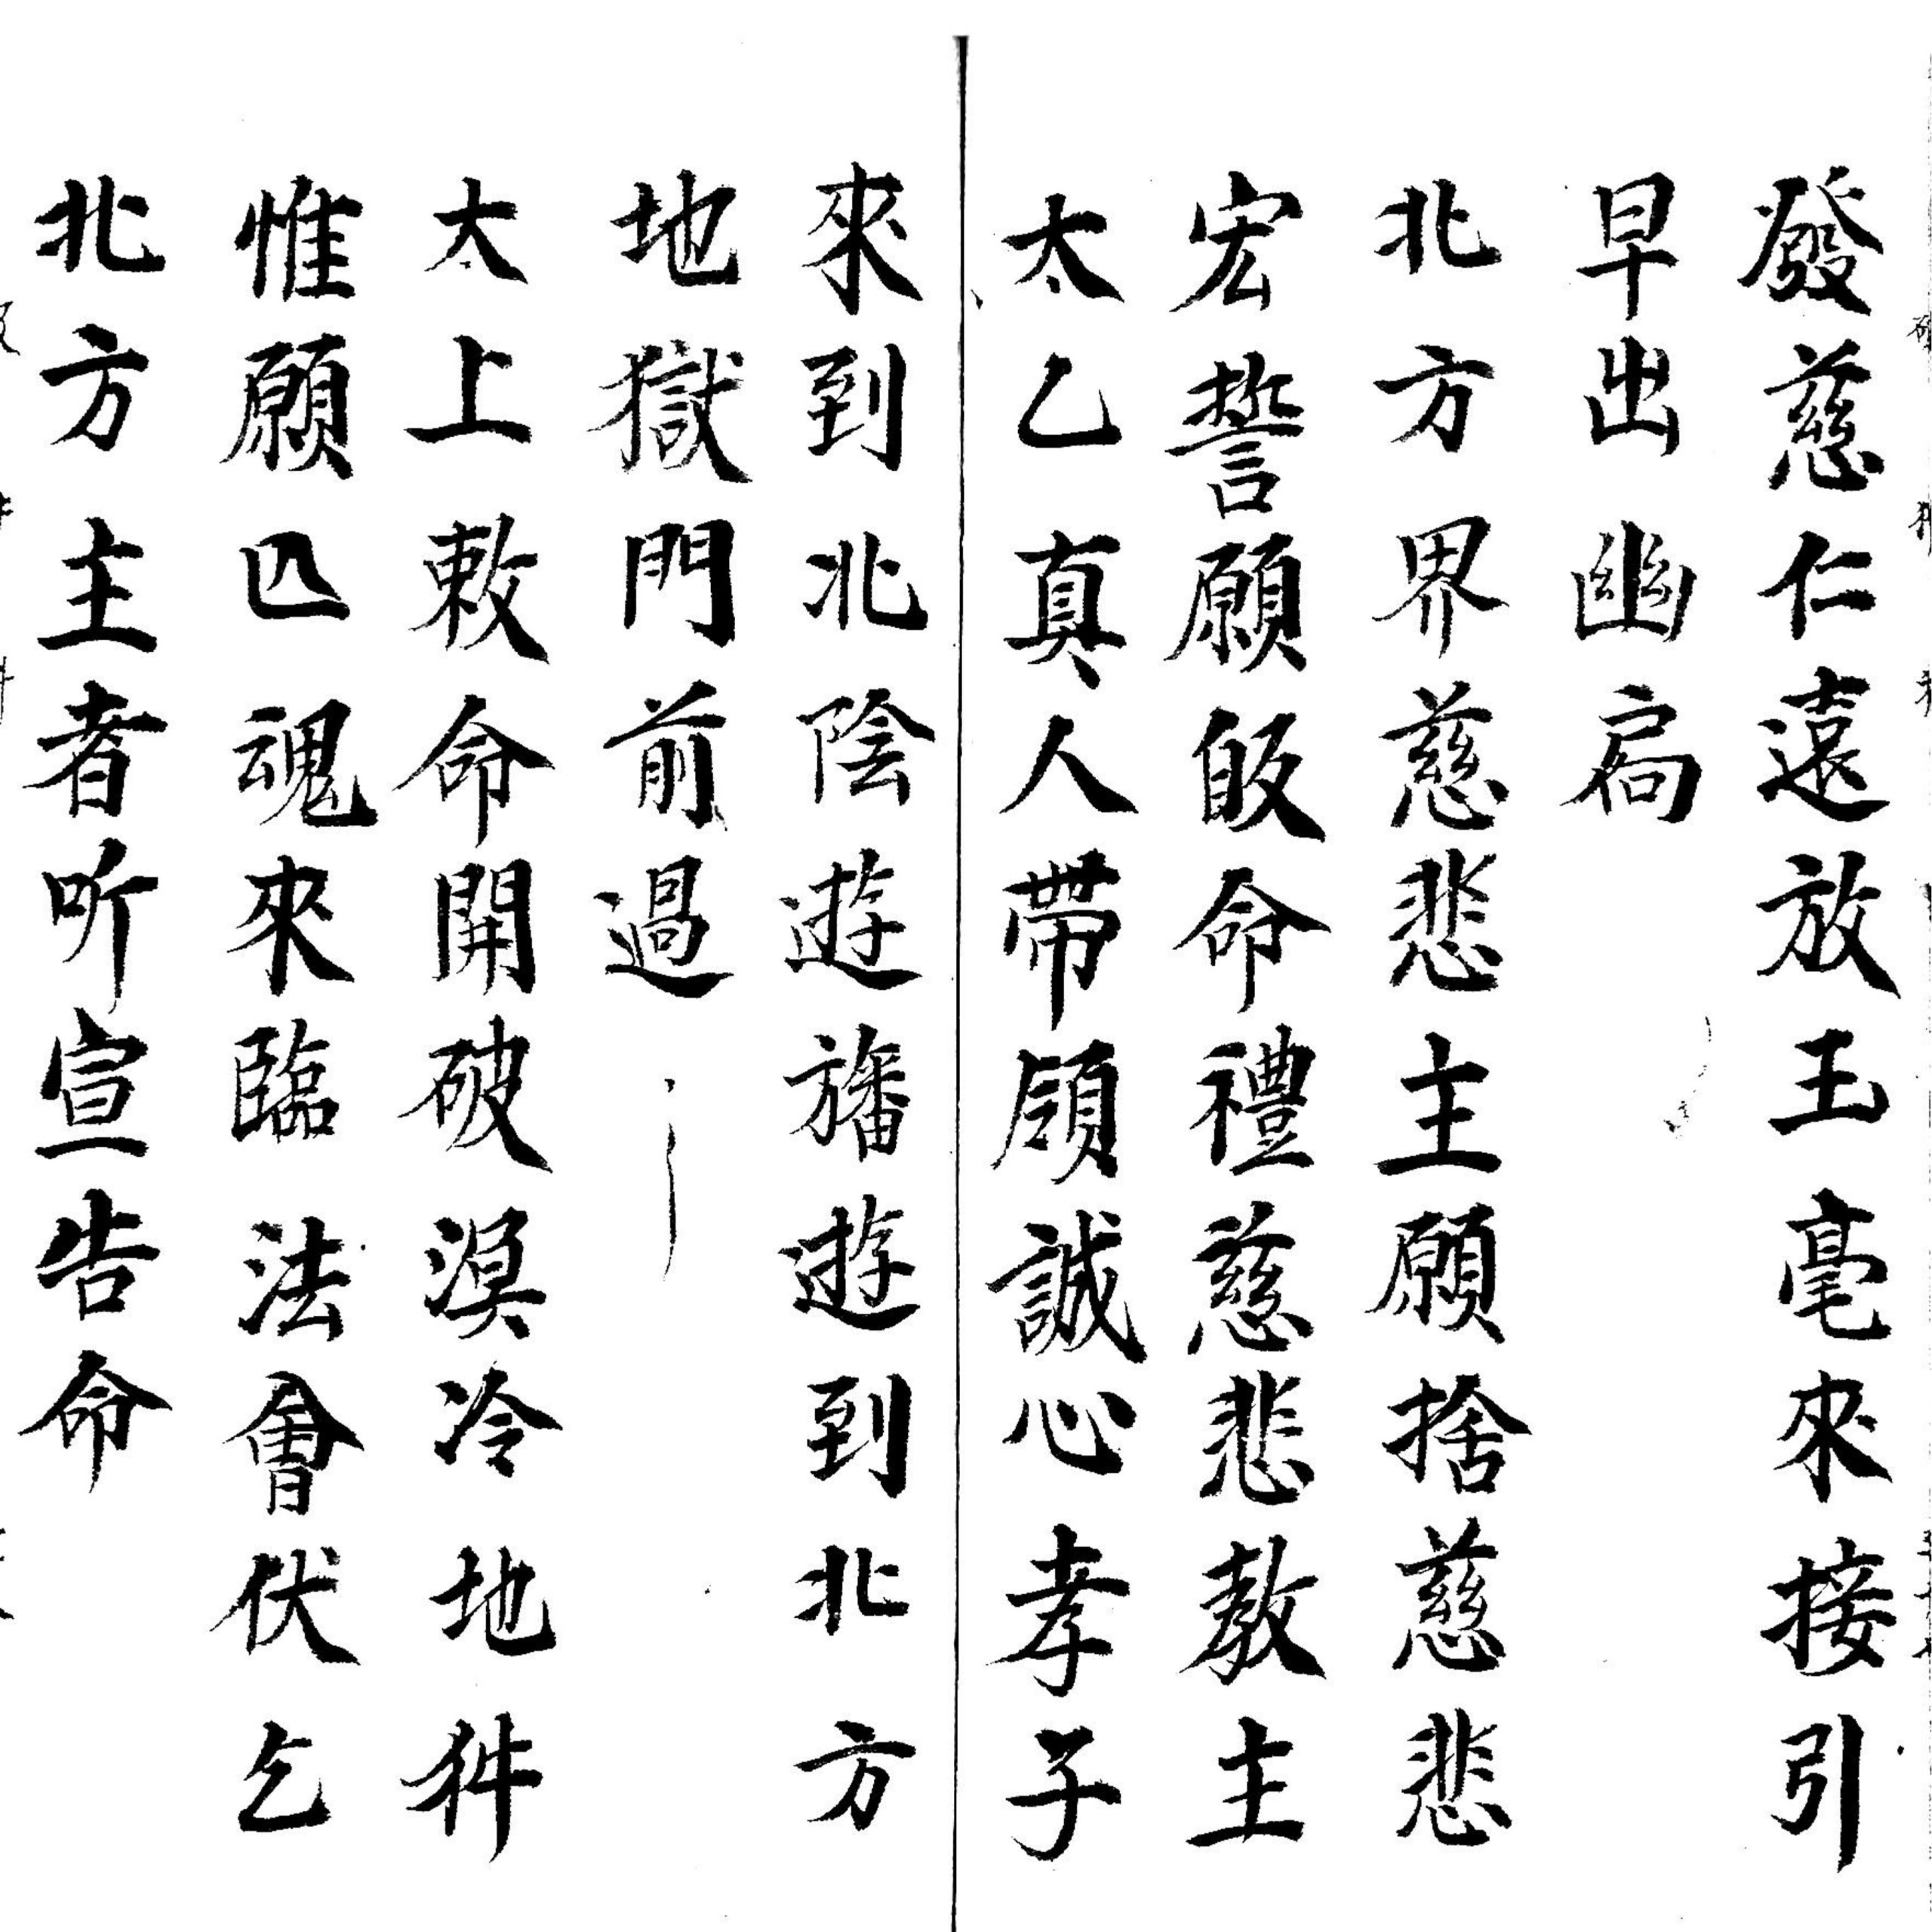 發慈仁遠放玉毫來接引
早出幽扃
北方界慈悲主願捨慈悲
宏誓願皈命禮慈悲教主
太乙真人帶領誠心孝子
來到北陰遊旛遊到北方
地獄門前過
太上敕命開破溟冷地狱
惟願亡魂來臨法會伏乞
北方主者听宣告命